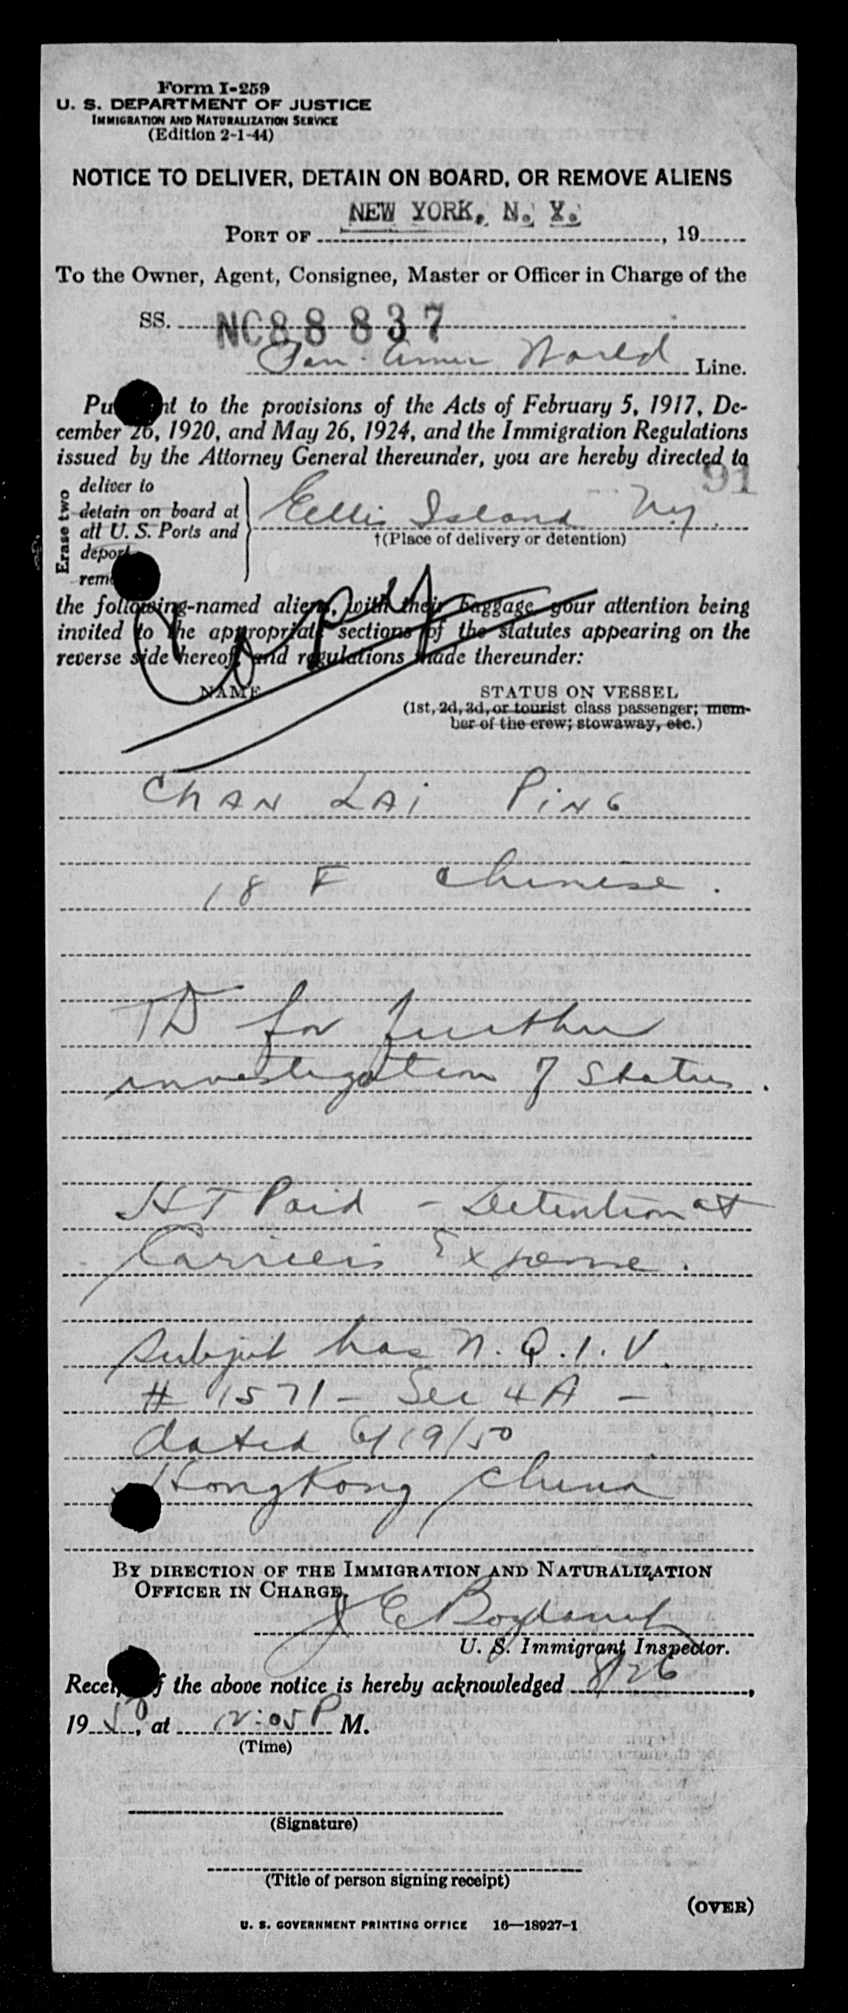 Form I-259
U. S. DEPARTMENT OF JUSTICE
IMMIGRATION AND NATURALIZATION SERVICE
(Edition 2-1-44)
NOTICE TO DELIVER, DETAIN ON BOARD, OR REMOVE ALIENS
PORT OF NEW YORK, N. Y., 19
To the Owner, Agent, Consignee, Master or Officer in Charge of the
SS. NC88837
Pan. Amer World Line.
Pu t to the provisions of the Acts of February 5, 1917, De-
cember 26, 1920, and May 26, 1924, and the Immigration Regulations
issued by the Attorney General thereunder, you are hereby directed to
91
Erase two
deliver to
detain on board at
all U. S. Ports and
deport
rem
Ellis Island N.Y.
†(Place of delivery or detention)
Copy
the following-named aliens, with their baggage, your attention being
invited to the appropriate sections of the statutes appearing on the
reverse side hereof and regulations made thereunder:
NAME
STATUS ON VESSEL
(1st, 2d, 3d, or tourist class passenger; mem-
ber of the crew; stowaway, etc.)
CHAN LAI PING
18 F Chinese.
TD for further
investigation of Status.
HT Paid - Detention at
Carriers Expense.
Subject has N. Q. I. V.
# 1571 - Sec 4A -
dated 6/19/50
HongKong China
BY DIRECTION OF THE IMMIGRATION AND NATURALIZATION
OFFICER IN CHARGE,
J C
U. S. Immigrant Inspector.
Recei f the above notice is hereby acknowledged 8/26,
1950, at 12:05 P M.
(Time)
(Signature)
(Title of person signing receipt)
(OVER)
U. S. GOVERNMENT PRINTING OFFICE 16—18927-1